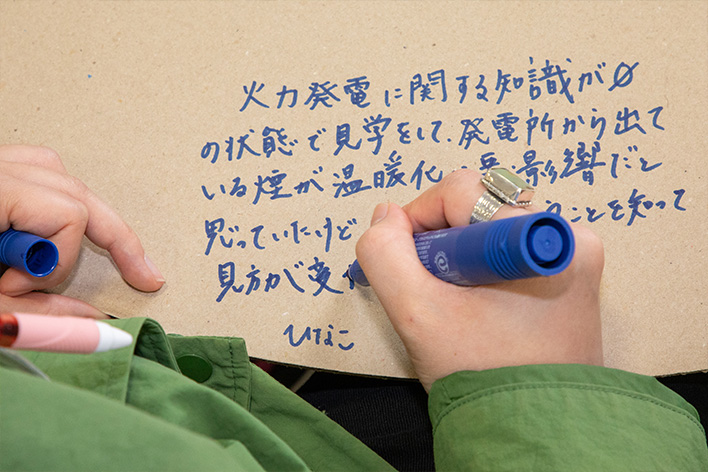 火力発電に関する知識が0
の状態で見学をして、発電所から出て
いる煙が温暖化 悪影響だと
思っていたけど ことを知って
見方が変
ひなこ